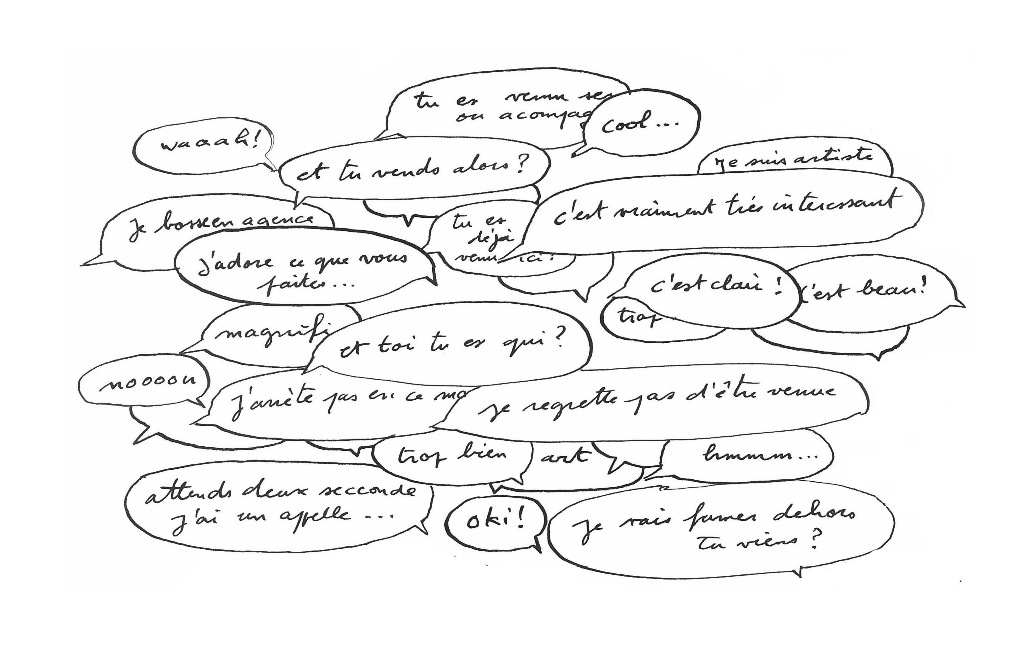 tu es venu se
ou acompag
cool...
waaah!
et tu vends alors?
je suis artiste
c'est vraiment très intéressant
je bosse en agence
tu es
déjà
venu ici?
j'adore ce que vous
faites...
c'est clair!
c'est beau!
trop
magnifi
et toi tu es qui?
noooon
j'arrète pas en ce mo
je regrette pas d'être venue
trop bien
art
hmmmm...
attends deux secconde
j'ai un appelle ...
oki!
je vais fumer dehors
tu viens?